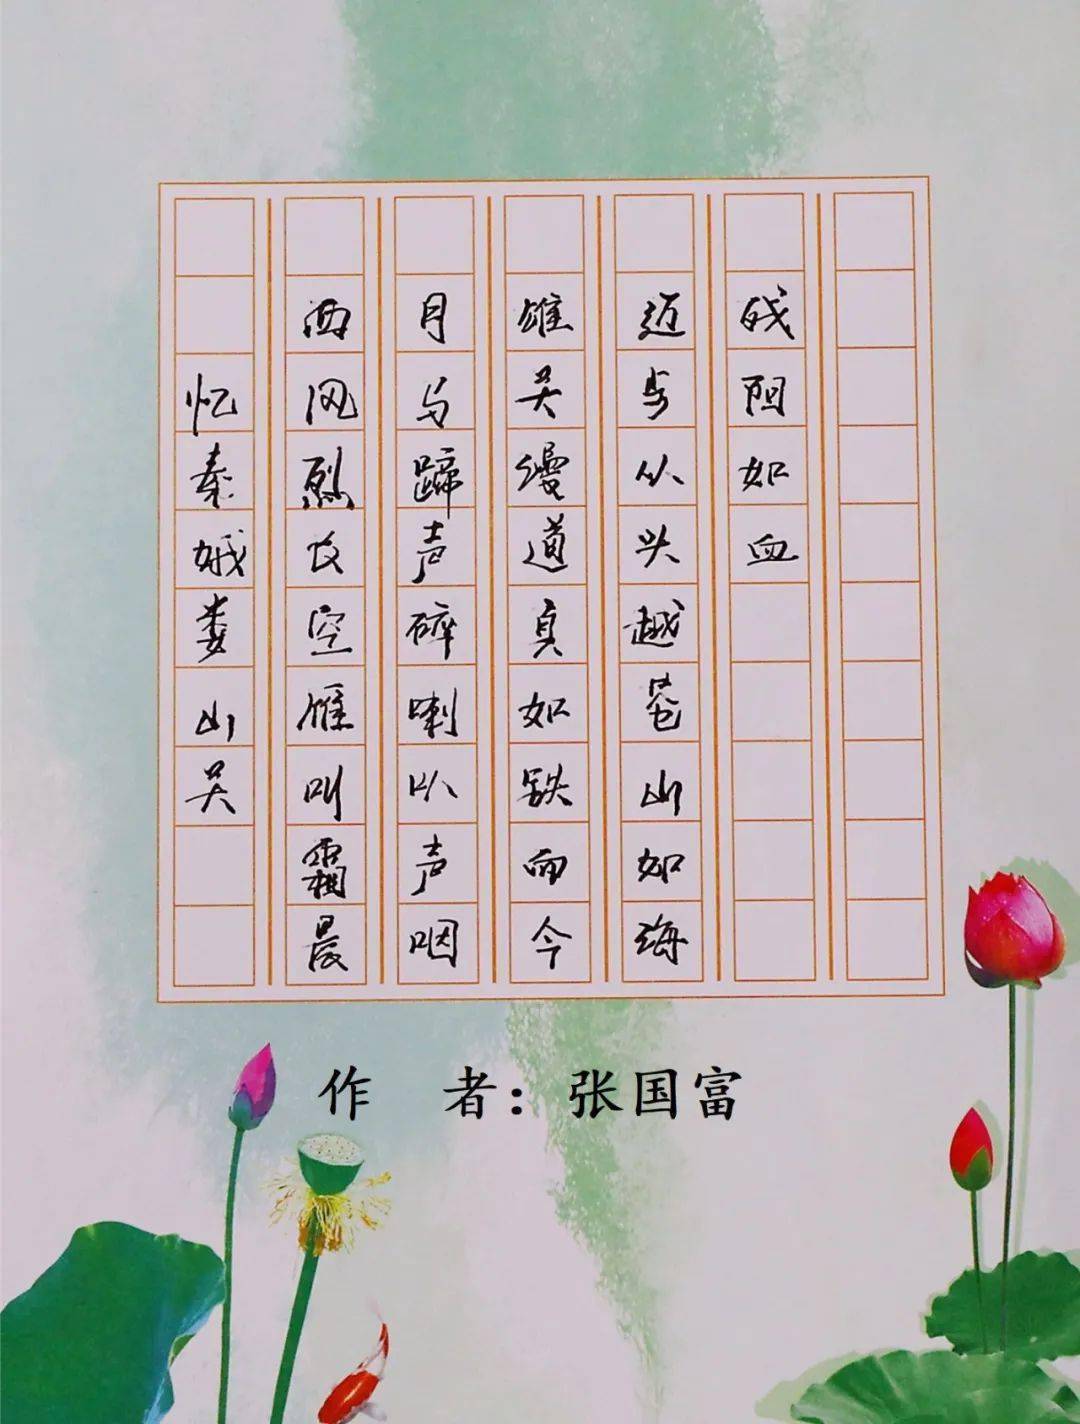 忆秦娥娄山关
西风烈长空雁叫霜晨
月马蹄声碎喇叭声咽
雄关漫道真如铁而今
迈步从头越苍山如海
残阳如血
作 者：张国富